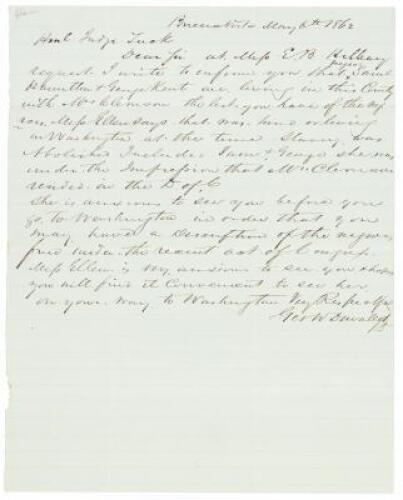 Buenavista May 6th 1862
Honl Judge Tuck
Dear Sir at Miss E. B Hilleary
request I write to enform you that Saml
Hamilton & George Kent are living in this County
with Mr Clemson the list you have of the neg
roes, Miss Ellen says that was hired or living
in Washington at the time Slavery was
Abolished Includes Saml & George she was
under the Impression that Mr Clemson
resided in the D of C
She is anxious to see you before you
go to Washington in order that you
may have a Description of the negroes
free under the recent act of Congress
Miss Ellen is very anxious to see you & hopes
you will find it Convenient to see her
on your way to Washington Very Respectfully
Geo W Duvall